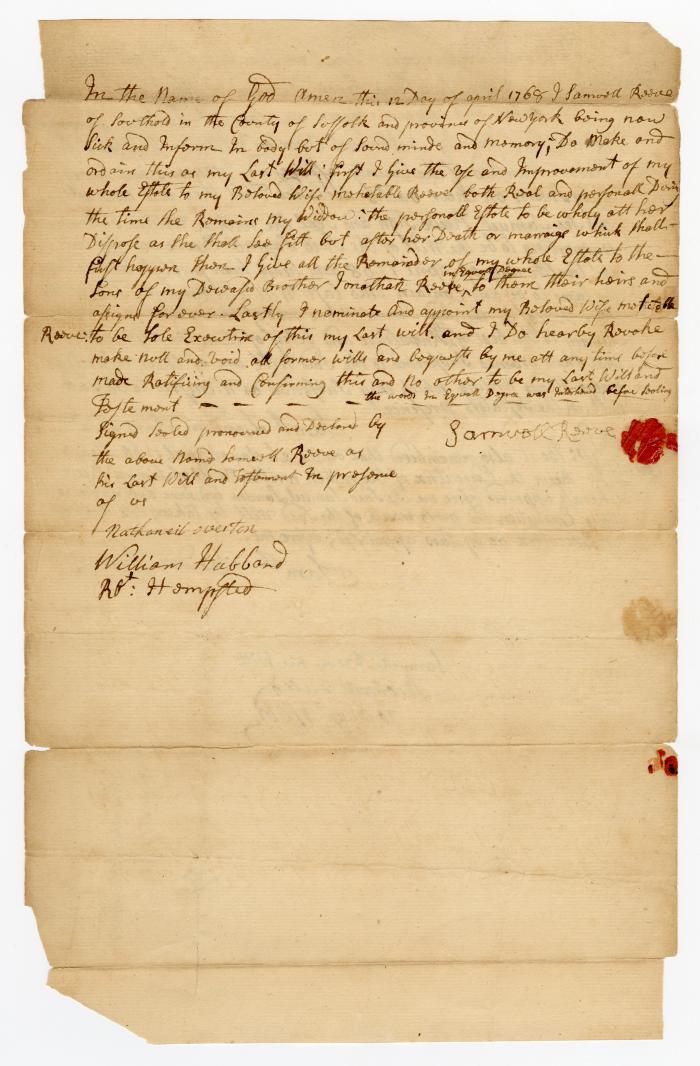 In the Name of God Amen this 12 Day of april 1768 I Samwell Reeve
of Sowthold in the County of Suffolk and province of New York being now
Sick and Inform In body but of Sound minde and memory, Do Make and
ordain this as my Last Will: first I Give the use and Improvement of my
whole Estate to my Beloved Wife mehetable Reeve both Real and personall During
the time she Remains my Widdow: the personall Estate to be wholy att her
Dispose as she shall See fitt but after her Death or marriage which shall
fust happen then I Give all the Remainder of my whole Estate to the
in Equall Degree
Sons of my Deceased Brother Jonathan Reeve ^ to them their heirs and
asigns for ever - Lastly I nominate and appoint my Beloved Wife mehetable
Reeve: to be Sole Executrix of this my Last will. and I Do hearby Revoke
make null and void all former wills and Bequests by me att any time before
made Ratifiing and Confirming this and no other to be my Last Will and
Testement - - - - the words In Equall Degree was Interlined before sealing
Signed Sealed pronounced and Declared by
Samwell Reeve
the above Named Samwell Reeve as
his Last Will and testament In presence
of us
Nathaneil overton
William Hubbard
Rbt: Hempsted